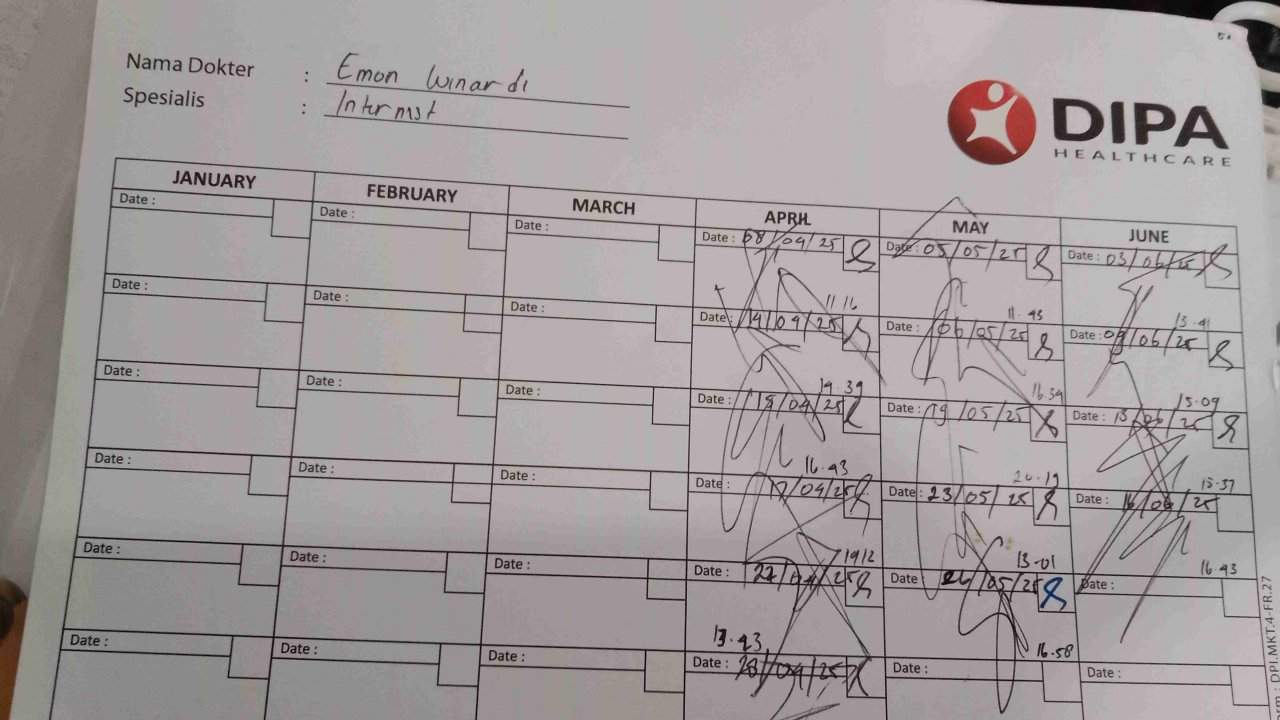 Nama Dokter : Emon Winardi
Spesialis : Internist
DIPA
HEALTHCARE
JANUARY FEBRUARY MARCH APRIL MAY JUNE
Date : Date : Date : Date : 08/04/25 Date : 05/05/25 Date : 03/06/25
11 16 11.43 13.41
Date : Date : Date : Date : 14/04/25 Date : 06/05/25 Date : 09/06/25
19 39 16.34 15.09
Date : Date : Date : Date : 15/04/25 Date : 19/05/25 Date : 13/06/25
16.43 20.19 15.37
Date : Date : Date : Date : 17/04/25 Date : 23/05/25 Date : 16/06/25
1912 13.01 16.43
Date : Date : Date : Date : 22/04/25 Date : 26/05/25 Date :
16.58
Date : Date : Date : Date : 28/04/25 Date : Date :
DPI.MKT.4-FR.27